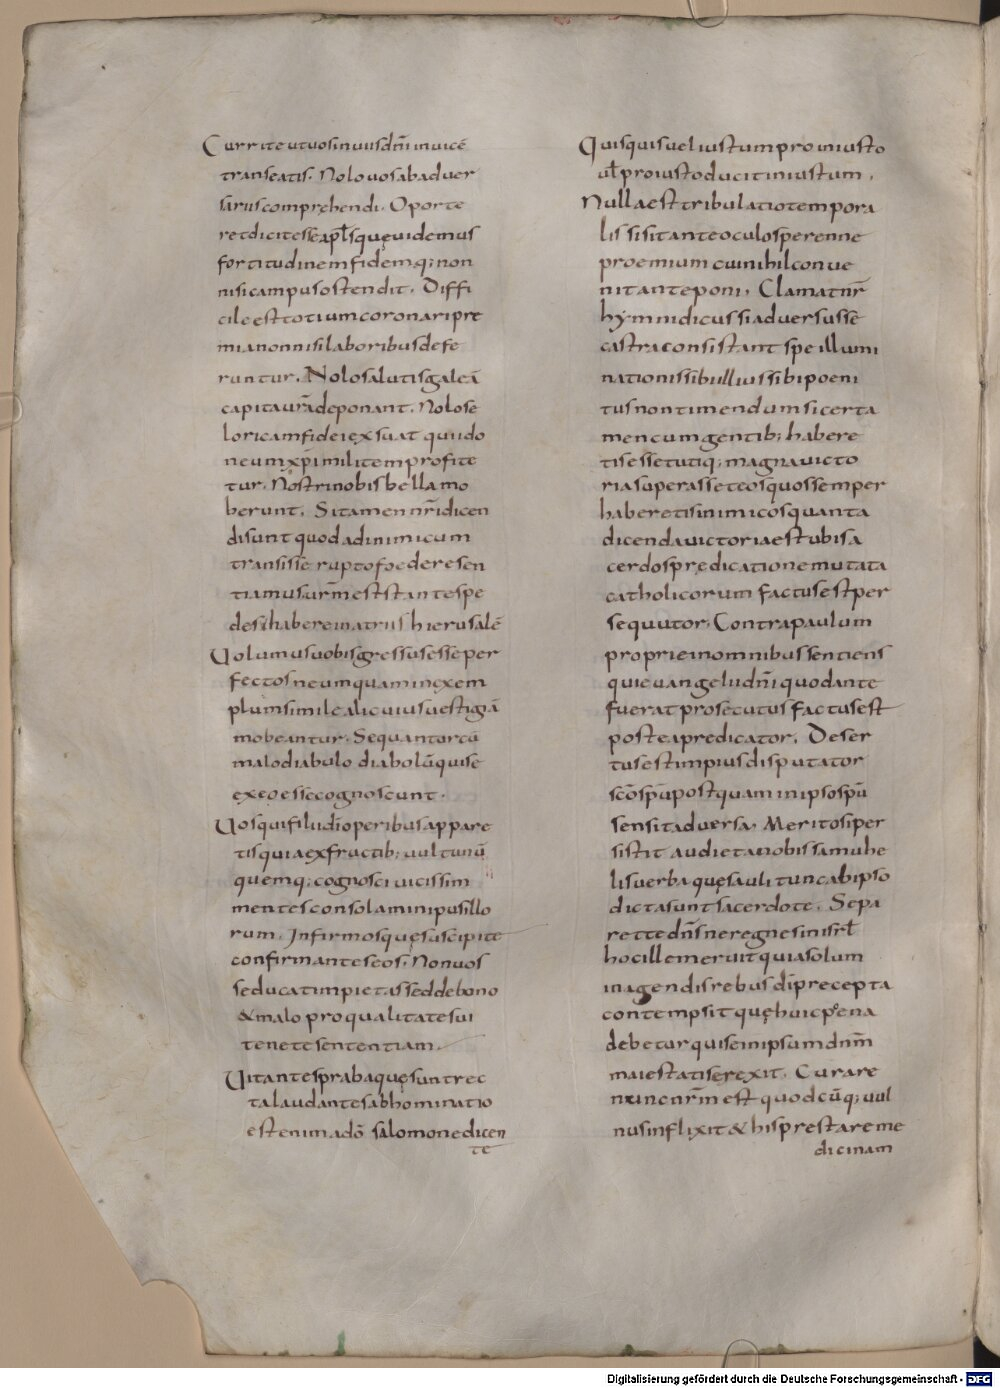 Currite ut uos in uiis dn̄i inuicē
transeatis. Nolo uos ab aduer
sariis comprehendi. Oporte
ret dici te esse apl̄s quę uidemus
fortitudinem fidemq; non
nisi campus ostendit. Diffi
cile est totium coronari pre
mia non nisi laboribus defe
runtur. Nolo salutis galeā
capita ur̄a deponant. Nolo se
loricam fidei exsuat qui ido
neum xp̄i militem profite
tur. Nostri nobis bella mo
berunt. Si tamen nr̄i dicen
di sunt quod ad inimicum
transisse rupto foedere sen
tiamus ur̄m est stante spe
de sc̄i habere in atriis hierusalē
Uolumus uobis gressus esse per
fectos ne umquam in exem
plum simile alicuius uestigā
mobeantur. Sequantur cū
malo diabulo diabolū qui se
ex eo esse cognoscunt.
Uos qui filii dī operibus appare
tis quia ex fructib; uultunū
quemq; cognosci uicissim
mentes consolamini pusillo
rum. Infirmosquę suscipite
confirmantes eos. Non uos
seducat impietas sed de bono
& malo pro qualitate sui
tenete sententiam.
Uitantes prabaquę sunt rec
ta laudantes abhominatio
est enim a dō salomone dicen
te
Quisquis uel iustum pro iniusto
ul̄ pro iusto ducit iniustum.
Nulla est tribulatio tempora
lis si sit ante oculos perenne
proemium cui nihil conue
nit anteponi. Clamat nr̄
hymnidicus si aduersus se
castra consistant spe illumi
nationis sibi illius sibi poeni
tus non timendum si certa
men cum gentib; habere
tis esset utiq; magna uicto
ria superasset eos quos semper
haberetis inimicos quanta
dicenda uictoria est ubi sa
cerdos predicatione mutata
catholicorum factus est per
sequutor. Contra paulum
proprie in omnibus sentiens
qui euangelii dn̄i quod ante
fuerat prosecutus factus est
postea predicator. Deser
tus est impius disputator
sc̄o sp̄u postquam in ipso sp̄u
sensit aduersa. Merito si per
sistit audiet a nobis samuhe
lis uerba quę sauli tunc ab ipso
dicta sunt sacerdote. Sepa
ret te dn̄s ne regnes in isrl̄
hoc ille meruit quia solum
in agendis rebus dī precepta
contempsit quę huic poena
debetur qui se in ipsum dn̄m
maiestatis erexit. Curare
nunc nr̄m est quodcūq; uul
nus inflixit & his prestare me
dicinam
Digitalisierung gefördert durch die Deutsche Forschungsgemeinschaft - DFG